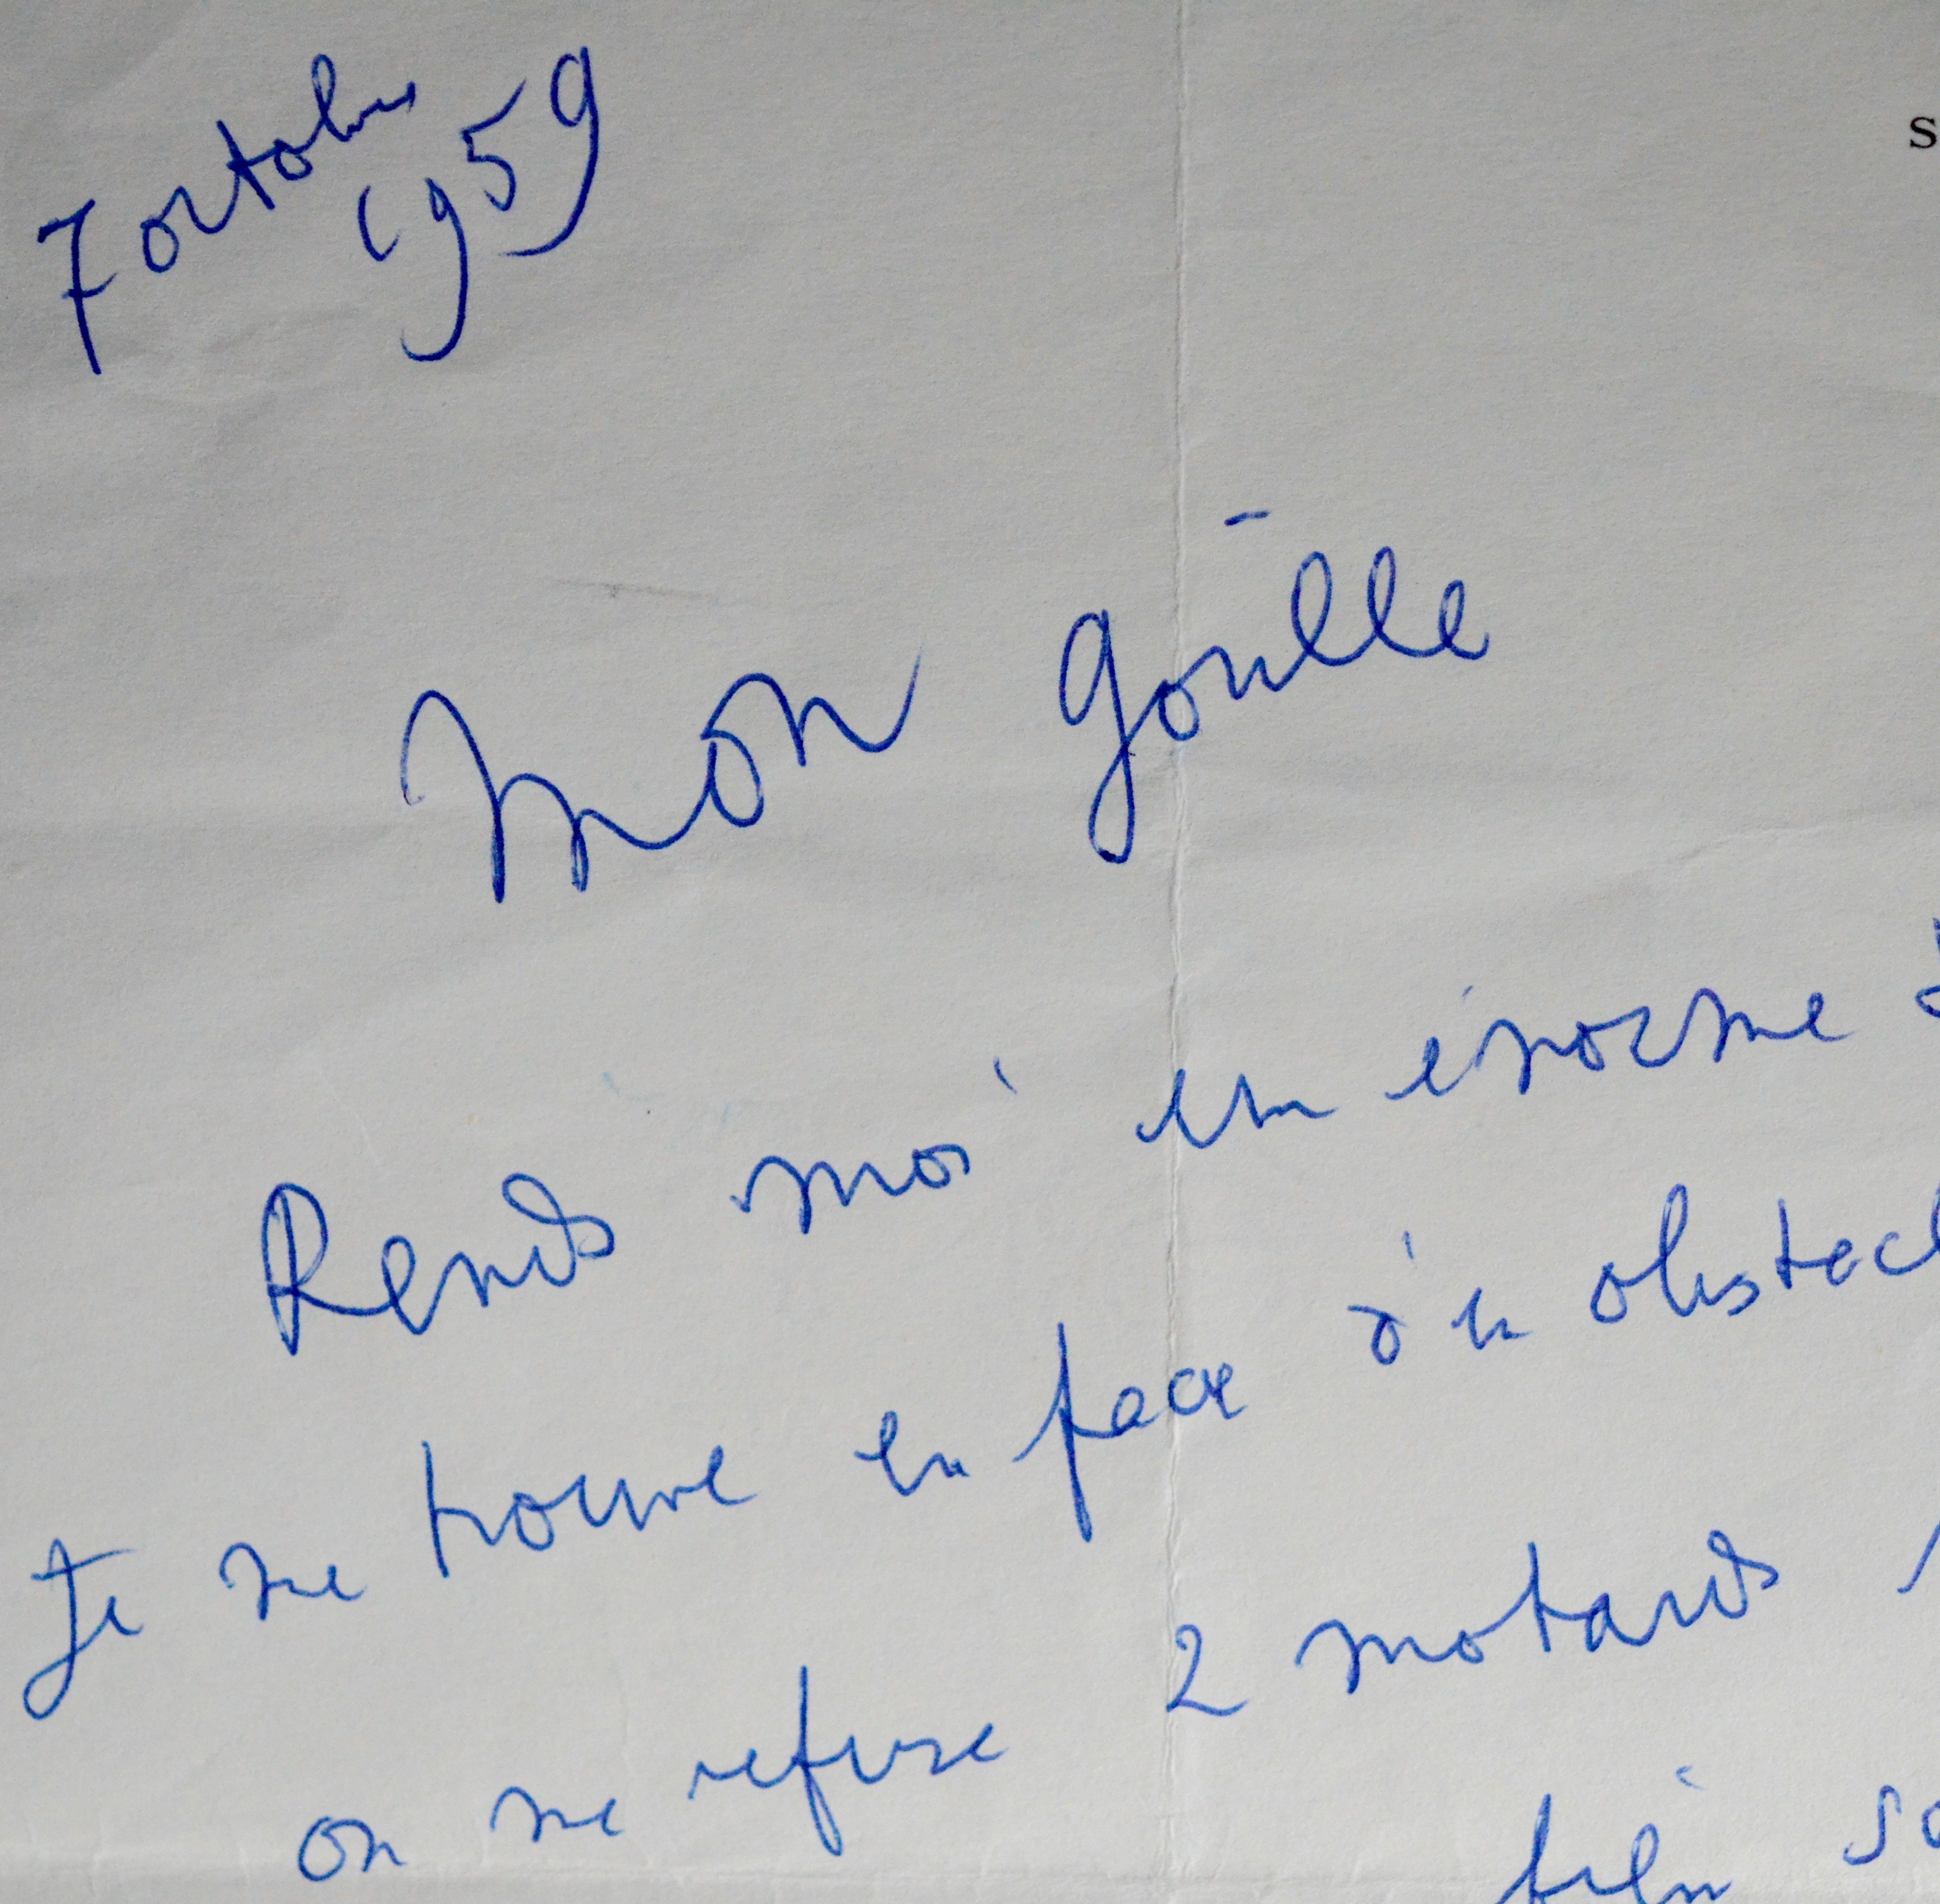 7 octobre
1959
S
Mon goïlle
Rends moi un énorme
Je me trouve en face d'un obstacl
on me refuse 2 motards
film so